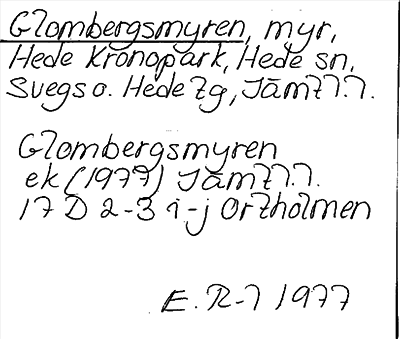 Glombergsmyren, myr,
Hede Kronopark, Hede sn,
Svegs o. Hede tg, Jämtl.l.
Glombergsmyren
ek (1977) Jämtl.l.
17 D 2-3 i-j Ortholmen
E. R-l 1977